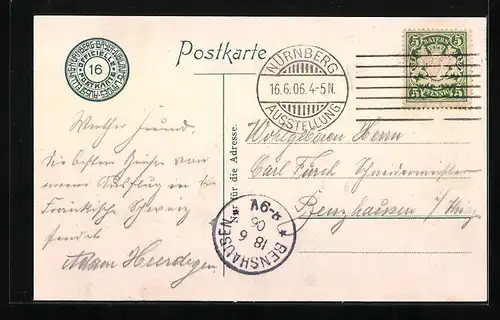 Postkarte
16
NÜRNBERG
16.6.06.4-5N.
AUSSTELLUNG
BAYERN
5 5
PFENNIG
5 5
Nur für die Adresse.
Werther Freund.
Die besten Grüße von
meinem Ausflug in die
Fränkische Schweiz
sendet
Adam Heerdegen
Wohlgeboren Herrn
Carl Furch Schneidermeister
Benzhausen i/Thrg.
BENSHAUSEN
18 6
06
8-9V